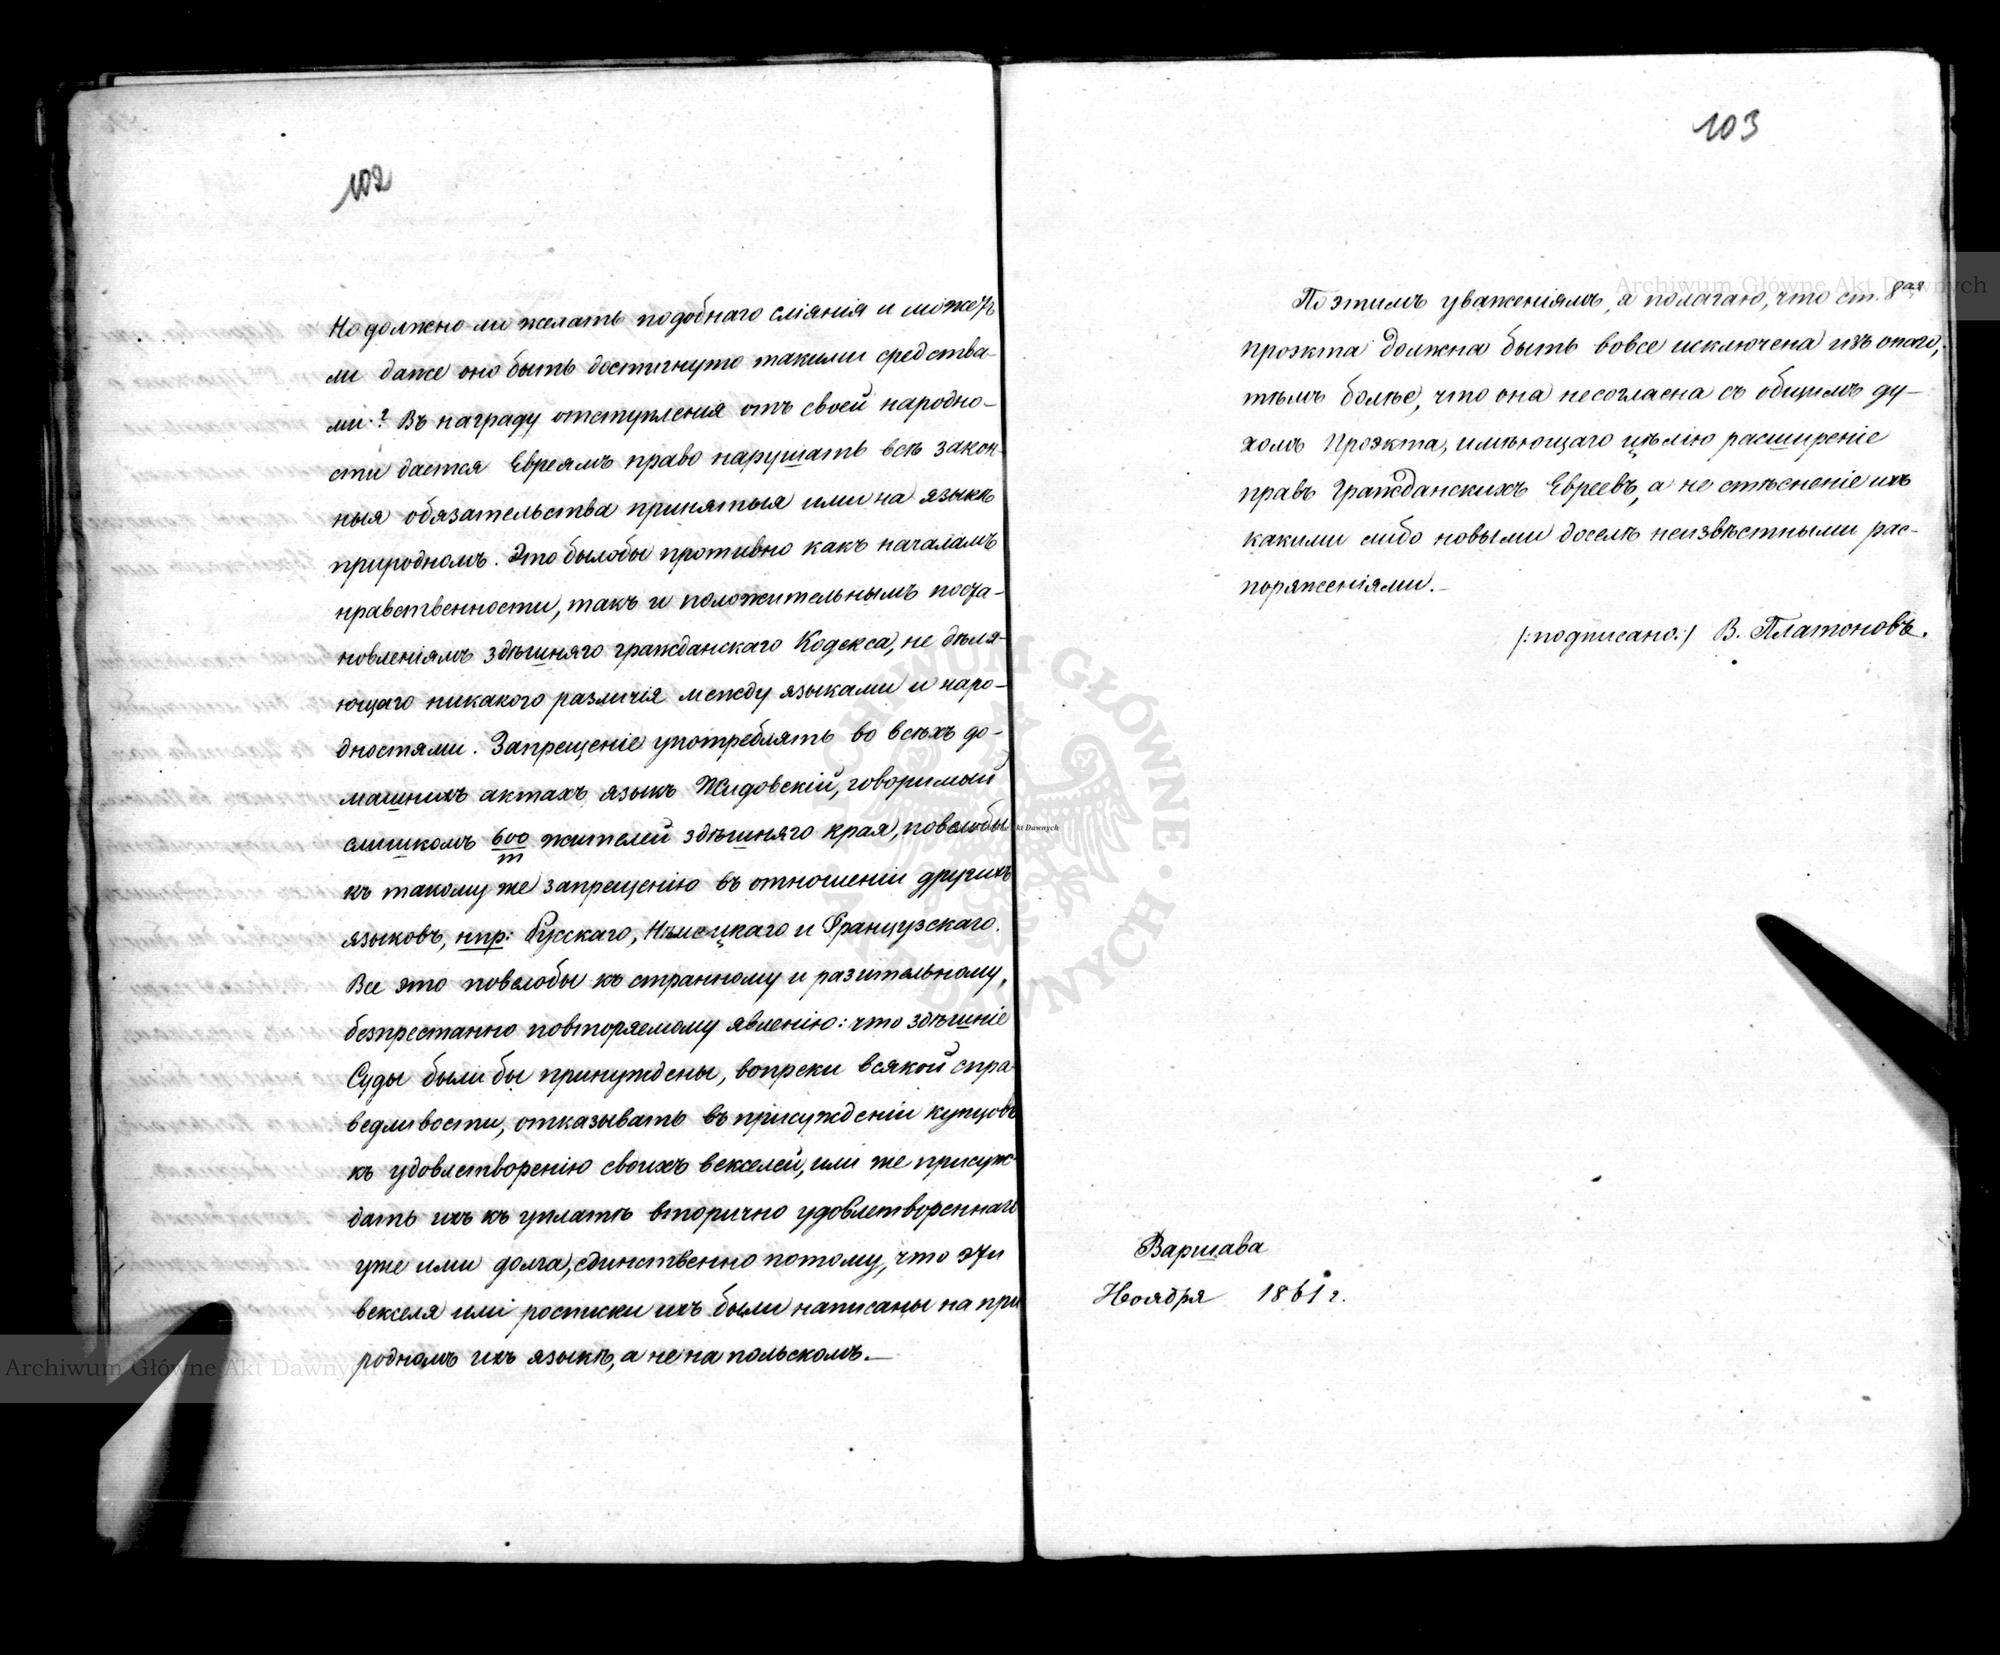 102
Но должно ли желать подобнаго сліянія и можетъ
ли даже оно быть достигнуто такими средства-
ми? Въ награду отступленія отъ своей народно-
сти дается Евреямъ право нарушать всѣ закон-
ныя обязательства принятыя ими на языкѣ
природномъ. Это былобы противно какъ началамъ
нравственности, такъ и положительнымъ поста-
новленіямъ здѣшняго гражданскаго Кодекса, не дѣла-
ющаго никакого различія между языками и наро-
дностями. Запрещеніе употреблять во всѣхъ до-
машнихъ актахъ языкъ Жидовскій, говоримый
слишкомъ 600/m жителей здѣшняго края, повелобы
къ такому же запрещенію въ отношеніи другихъ
языковъ, нпр: Русскаго, Нѣмецкаго и Французскаго.
Все это повелобы къ странному и разительному,
безпрестанно повторяемому явленію: что здѣшніе
Суды были бы принуждены, вопреки всякой спра-
ведливости, отказывать въ присужденіи купцовъ
къ удовлетворенію своихъ векселей, или же присуж-
дать ихъ къ уплатѣ вторично удовлетвореннаго
уже ими долга, единственно потому, что эти
векселя или росписки ихъ были написаны на при
родномъ ихъ языкѣ, а не на польскомъ.—
103
По этимъ уваженіямъ, я полагаю, что ст. 8ая
проэкта должна быть вовсе исключена изъ онаго,
тѣмъ болѣе, что она несогласна съ общимъ ду-
хомъ Проэкта, имѣющаго цѣлію расширеніе
правъ Гражданскихъ Евреевъ, а не стѣсненіе ихъ
какими либо новыми доселѣ неизвѣстными рас-
поряженіями.—
/:подписано:/ В. Платоновъ.
Варшава
Ноября 1861 г.
Archiwum Główne Akt Dawnych
Archiwum Główne Akt Dawnych
ARCHIWUM GŁÓWNE AKT DAWNYCH